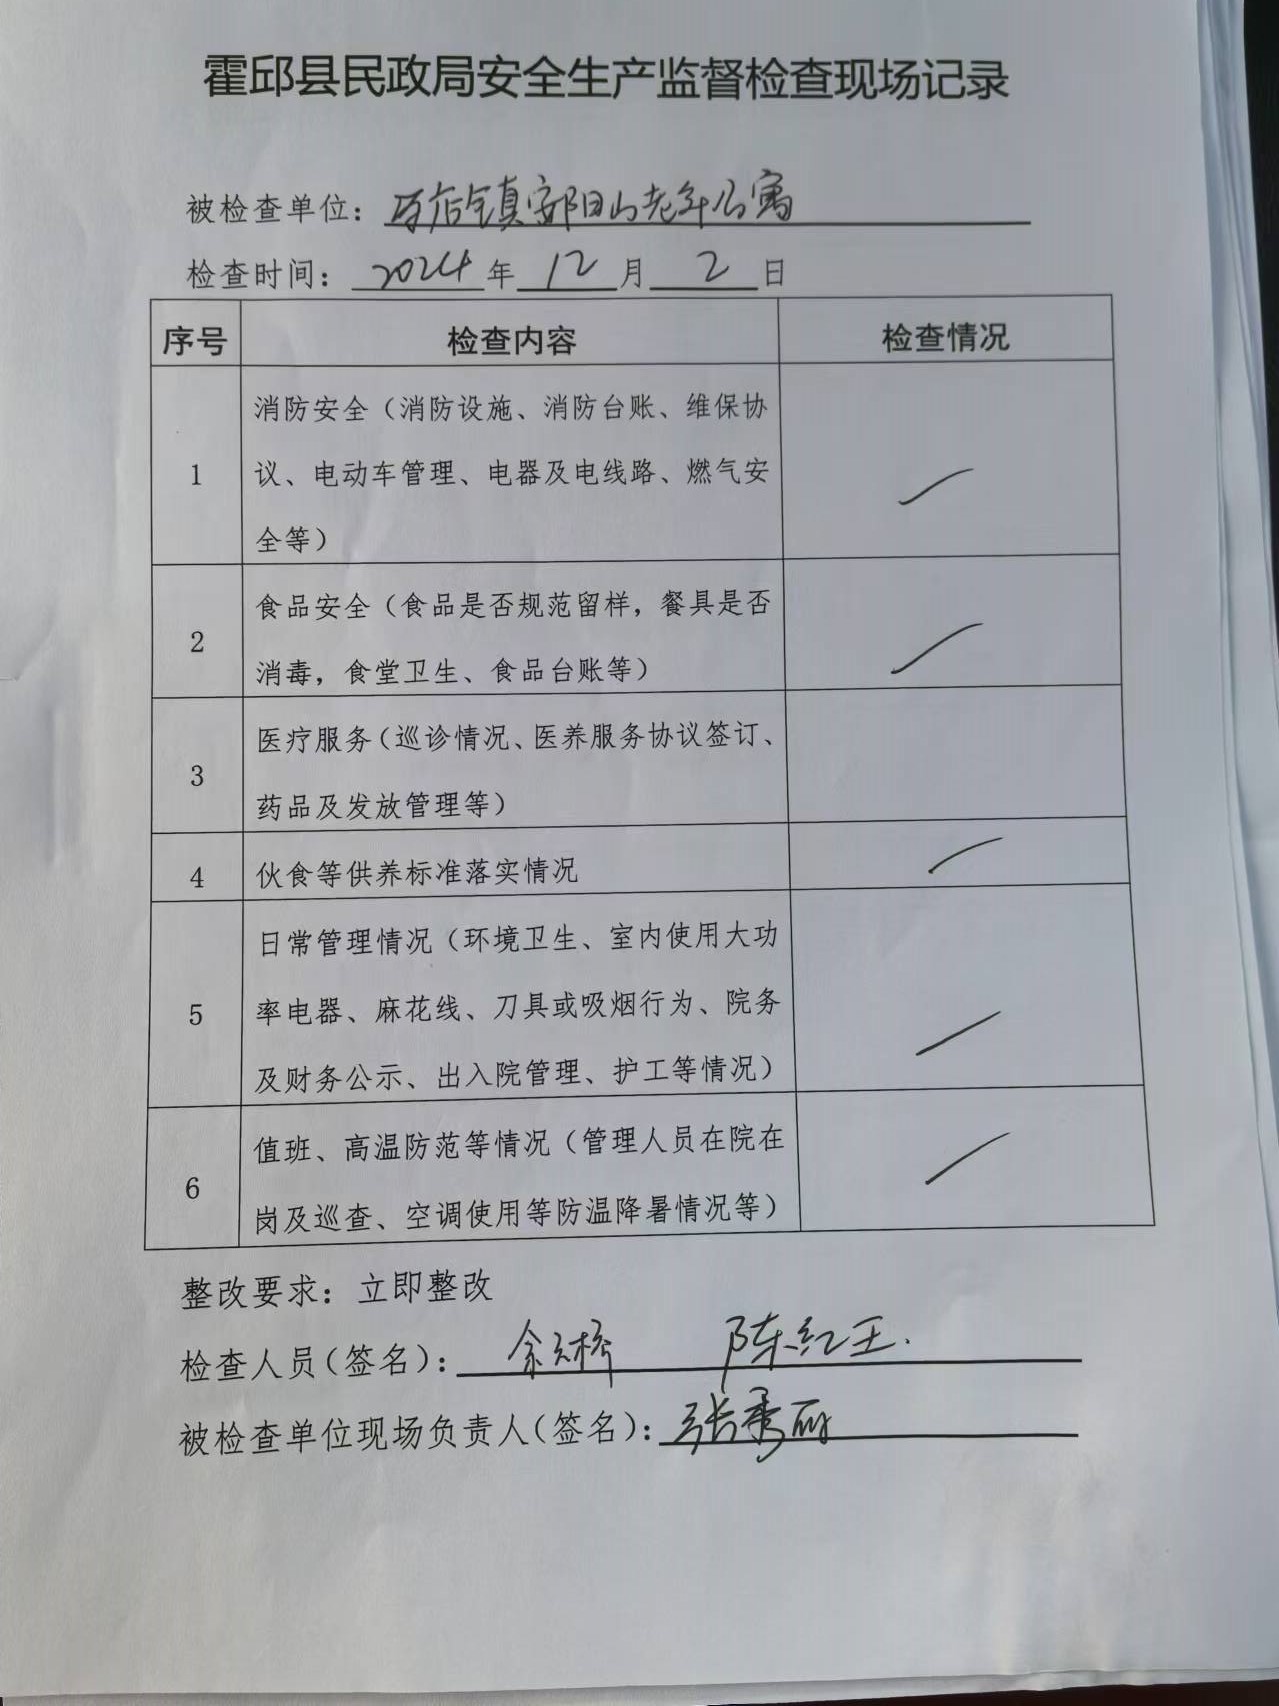 霍邱县民政局安全生产监督检查现场记录
被检查单位：店镇阳山老年公寓
检查时间：2024年12月2日
序号 检查内容 检查情况
1
消防安全（消防设施、消防台账、维保协
议、电动车管理、电器及电线路、燃气安
全等）
2
食品安全（食品是否规范留样，餐具是否
消毒，食堂卫生、食品台账等）
3
医疗服务（巡诊情况、医养服务协议签订、
药品及发放管理等）
4 伙食等供养标准落实情况
5
日常管理情况（环境卫生、室内使用大功
率电器、麻花线、刀具或吸烟行为、院务
及财务公示、出入院管理、护工等情况）
6
值班、高温防范等情况（管理人员在院在
岗及巡查、空调使用等防温降暑情况等）
整改要求：立即整改
检查人员（签名）： 陈红王
被检查单位现场负责人（签名）：张秀丽